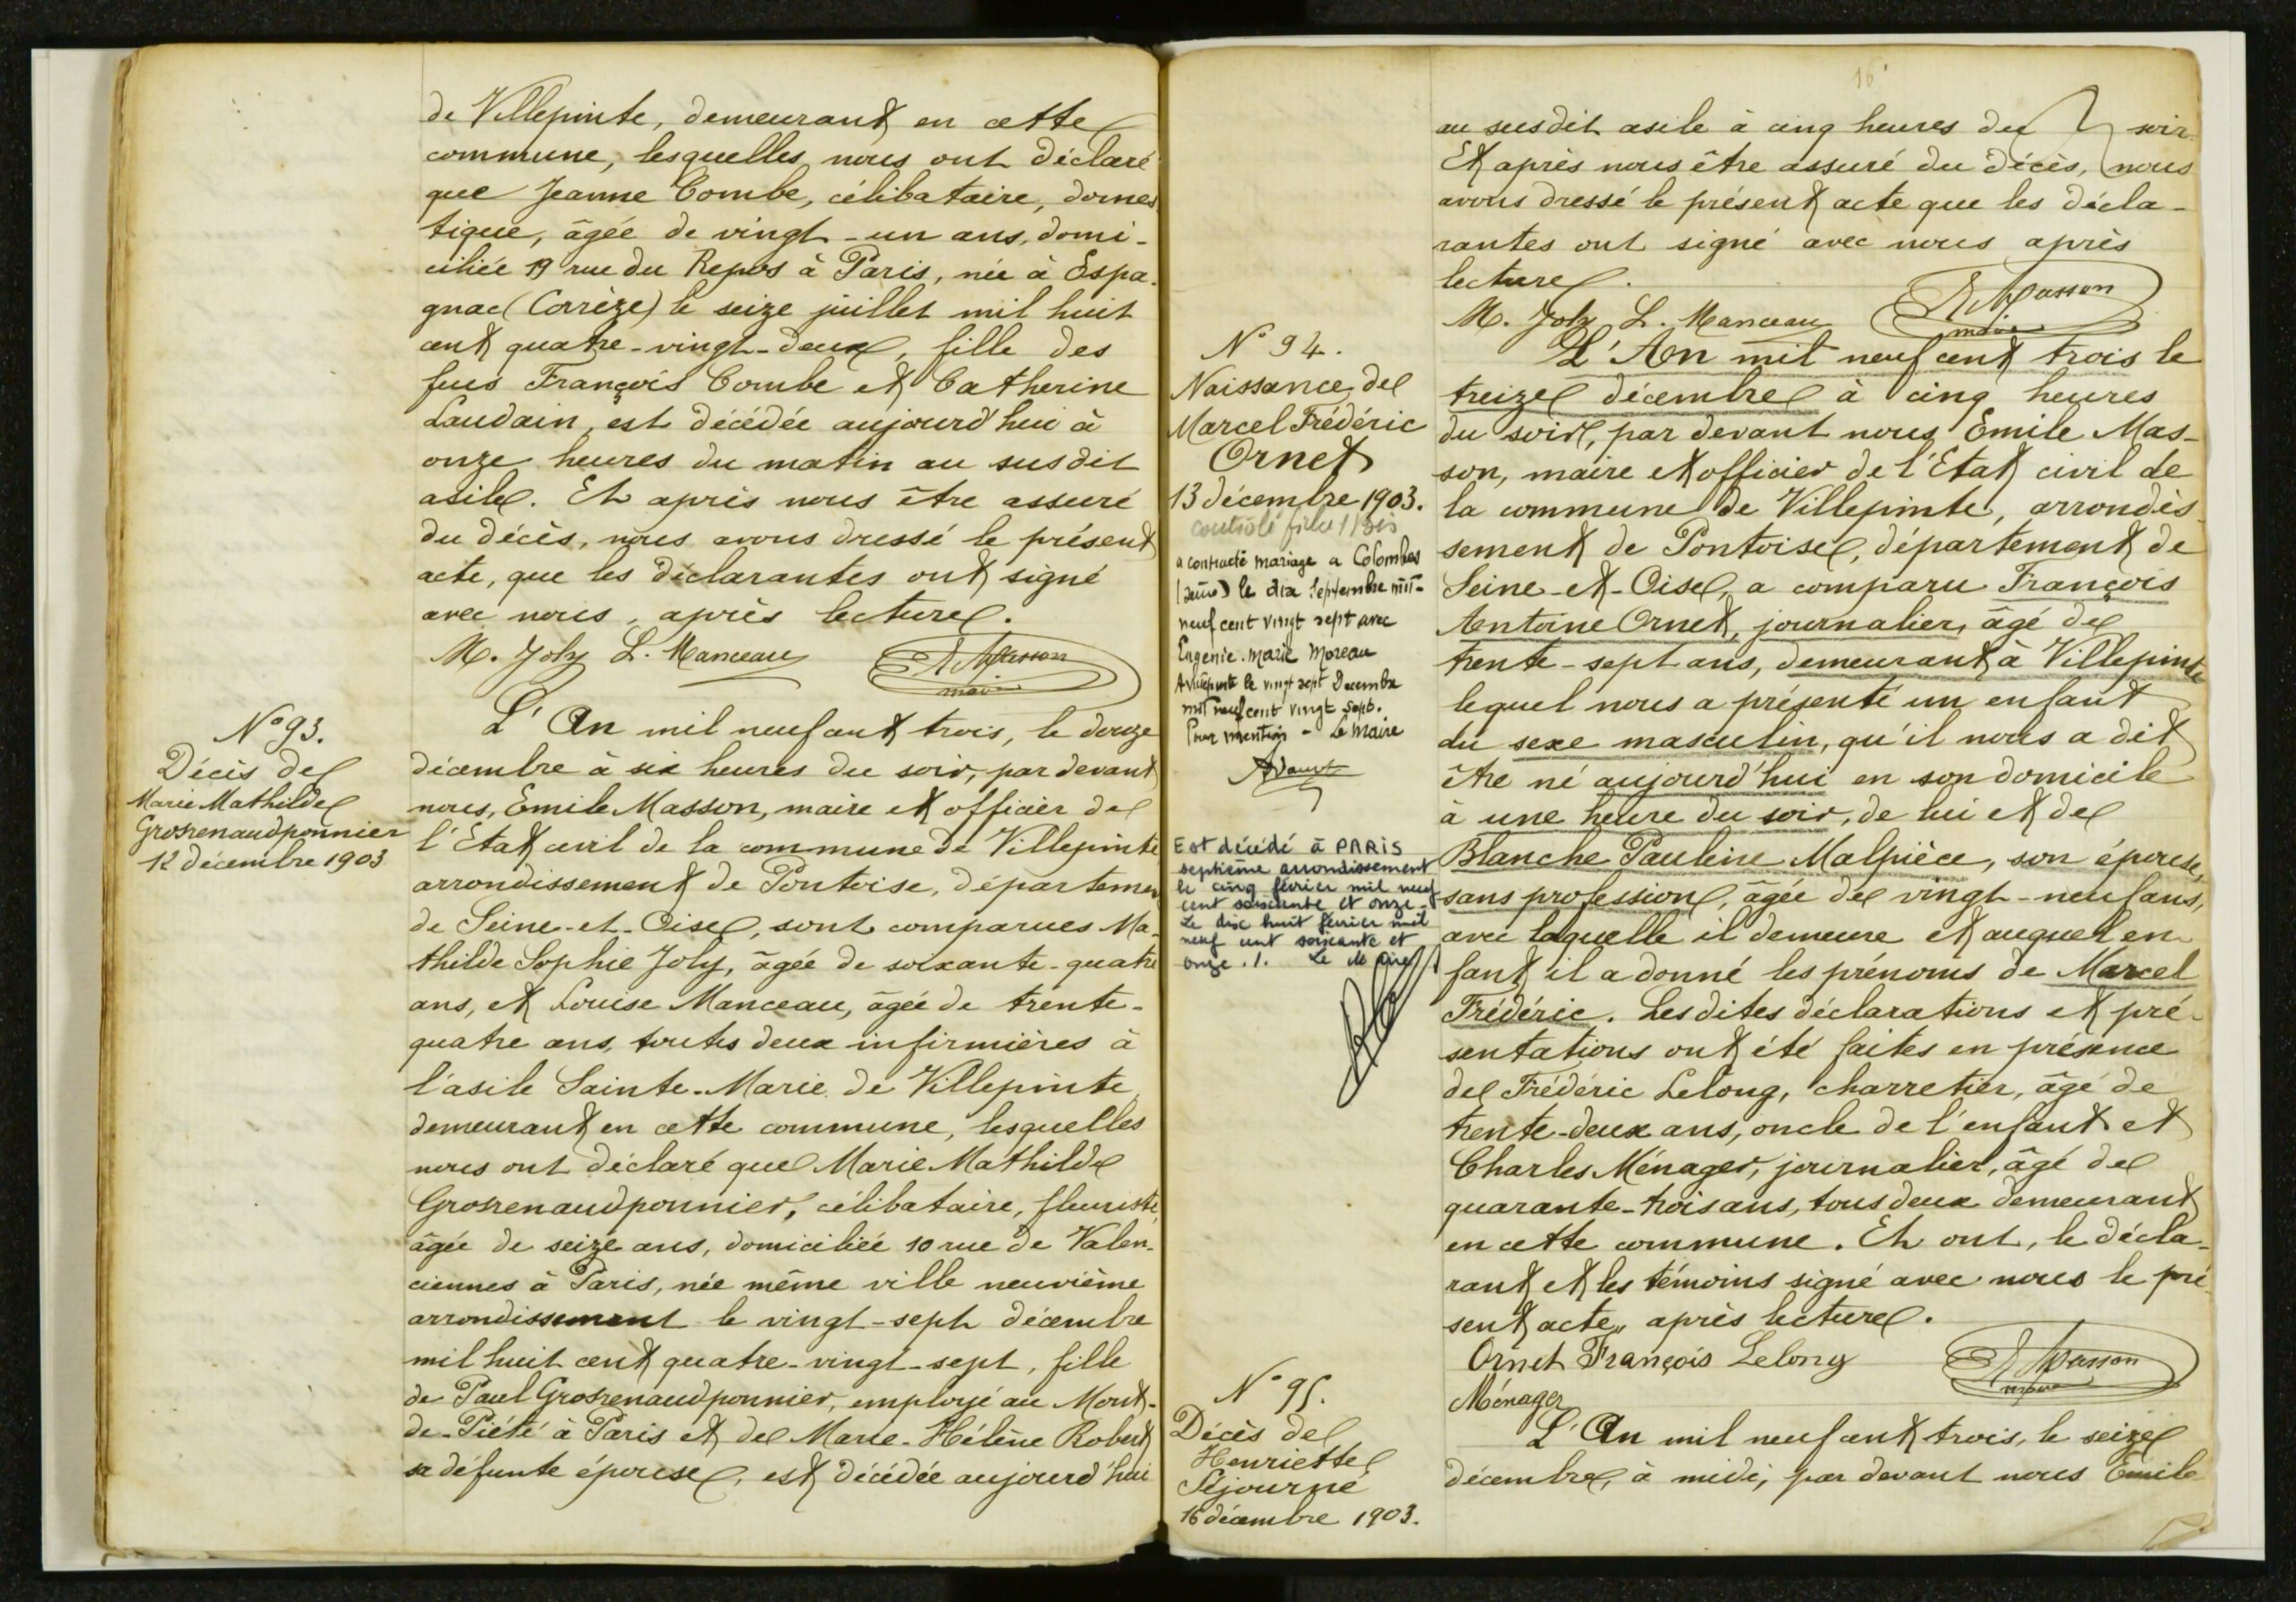 de Villepinte, demeurant en cette
commune, lesquelles nous ont déclaré
que Jeanne Combe, célibataire, domes
tique, âgée de vingt-un ans, domi-
ciliée 19 rue du Repos à Paris, née à Espa-
gnac (Corrèze) le seize juillet mil huit
cent quatre-vingt-deux, fille des
feus François Combe et Catherine
Laudain, est décédée aujourd'hui à
onze heures du matin au susdit
asile. Et après nous être assuré
du décès, nous avons dressé le présent
acte, que les déclarantes ont signé
avec nous, après lecture.
M. Joly L. Manceau E Masson
maire
N° 93.
Décès de
Marie Mathilde
Grosrenaudponnier
12 décembre 1903
L'An mil neuf cent trois, le douze
décembre à six heures du soir, par devant
nous, Emile Masson, maire et officier de
l'Etat civil de la commune de Villepinte
arrondissement de Pontoise, départemen
de Seine-et-Oise, sont comparues Ma-
thilde Sophie Joly, âgée de soixante-quatre
ans, et Louise Manceau, âgée de trente-
quatre ans, toutes deux infirmières à
l'asile Sainte-Marie de Villepinte
demeurant en cette commune, lesquelles
nous ont déclaré que Marie Mathilde
Grosrenaudponnier, célibataire, fleuriste,
âgée de seize ans, domiciliée 10 rue de Valen-
ciennes à Paris, née même ville neuvième
arrondissement le vingt-sept décembre
mil huit cent quatre-vingt-sept, fille
de Paul Grosrenaudponnier, employé au Mont-
de-Piété à Paris et de Marie-Hélène Robert
sa défunte épouse, est décédée aujourd'hui
16
au susdit asile à cinq heures du soir.
Et après nous être assuré du décès, nous
avons dressé le présent acte que les décla-
rantes ont signé avec nous après
lecture.
M. Joly L. Manceau E Masson
maire
N° 94.
Naissance de
Marcel Frédéric
Ornet
13 décembre 1903.
contrôlé
a contracté mariage a Colombes
(Seine) le dix Septembre mil-
neuf cent vingt sept avec
Eugénie. Marie Moreau
A Villepinte le vingt sept Decembre
mil neuf cent vingt sept.
Pour mention - Le Maire
Est décédé à PARIS
septième arrondissement
le cinq février mil neuf
cent soixante et onze -
Le dix huit février mil
neuf cent soixante et
onze ./. Le Maire
L'An mil neuf cent trois le
treize décembre à cinq heures
du soir, par devant nous Emile Mas-
son, maire et officier de l'Etat civil de
la commune de Villepinte, arrondis-
sement de Pontoise, département de
Seine-et-Oise, a comparu François
Antoine Ornet, journalier, âgé de
trente-sept ans, demeurant à Villepinte
lequel nous a présenté un enfant
du sexe masculin, qu'il nous a dit
être né aujourd'hui en son domicile
à une heure du soir, de lui et de
Blanche Pauline Malpièce, son épouse,
sans profession, âgée de vingt-neuf ans,
avec laquelle il demeure et auquel en-
fant il a donné les prénoms de Marcel
Frédéric. Lesdites déclarations et pré-
sentations ont été faites en présence
de Frédéric Lelong, charretier, âgé de
trente-deux ans, oncle de l'enfant et
Charles Ménager, journalier, âgé de
quarante-trois ans, tous deux demeurant
en cette commune. Et ont, le décla-
rant et les témoins signé avec nous le pré-
sent acte, après lecture.
Ornet François Lelong E Masson
maire
Ménager
N° 95.
Décès de
Henriette
Séjourné
16 décembre 1903.
L'An mil neuf cent trois, le seize
décembre, à midi, par devant nous Emile